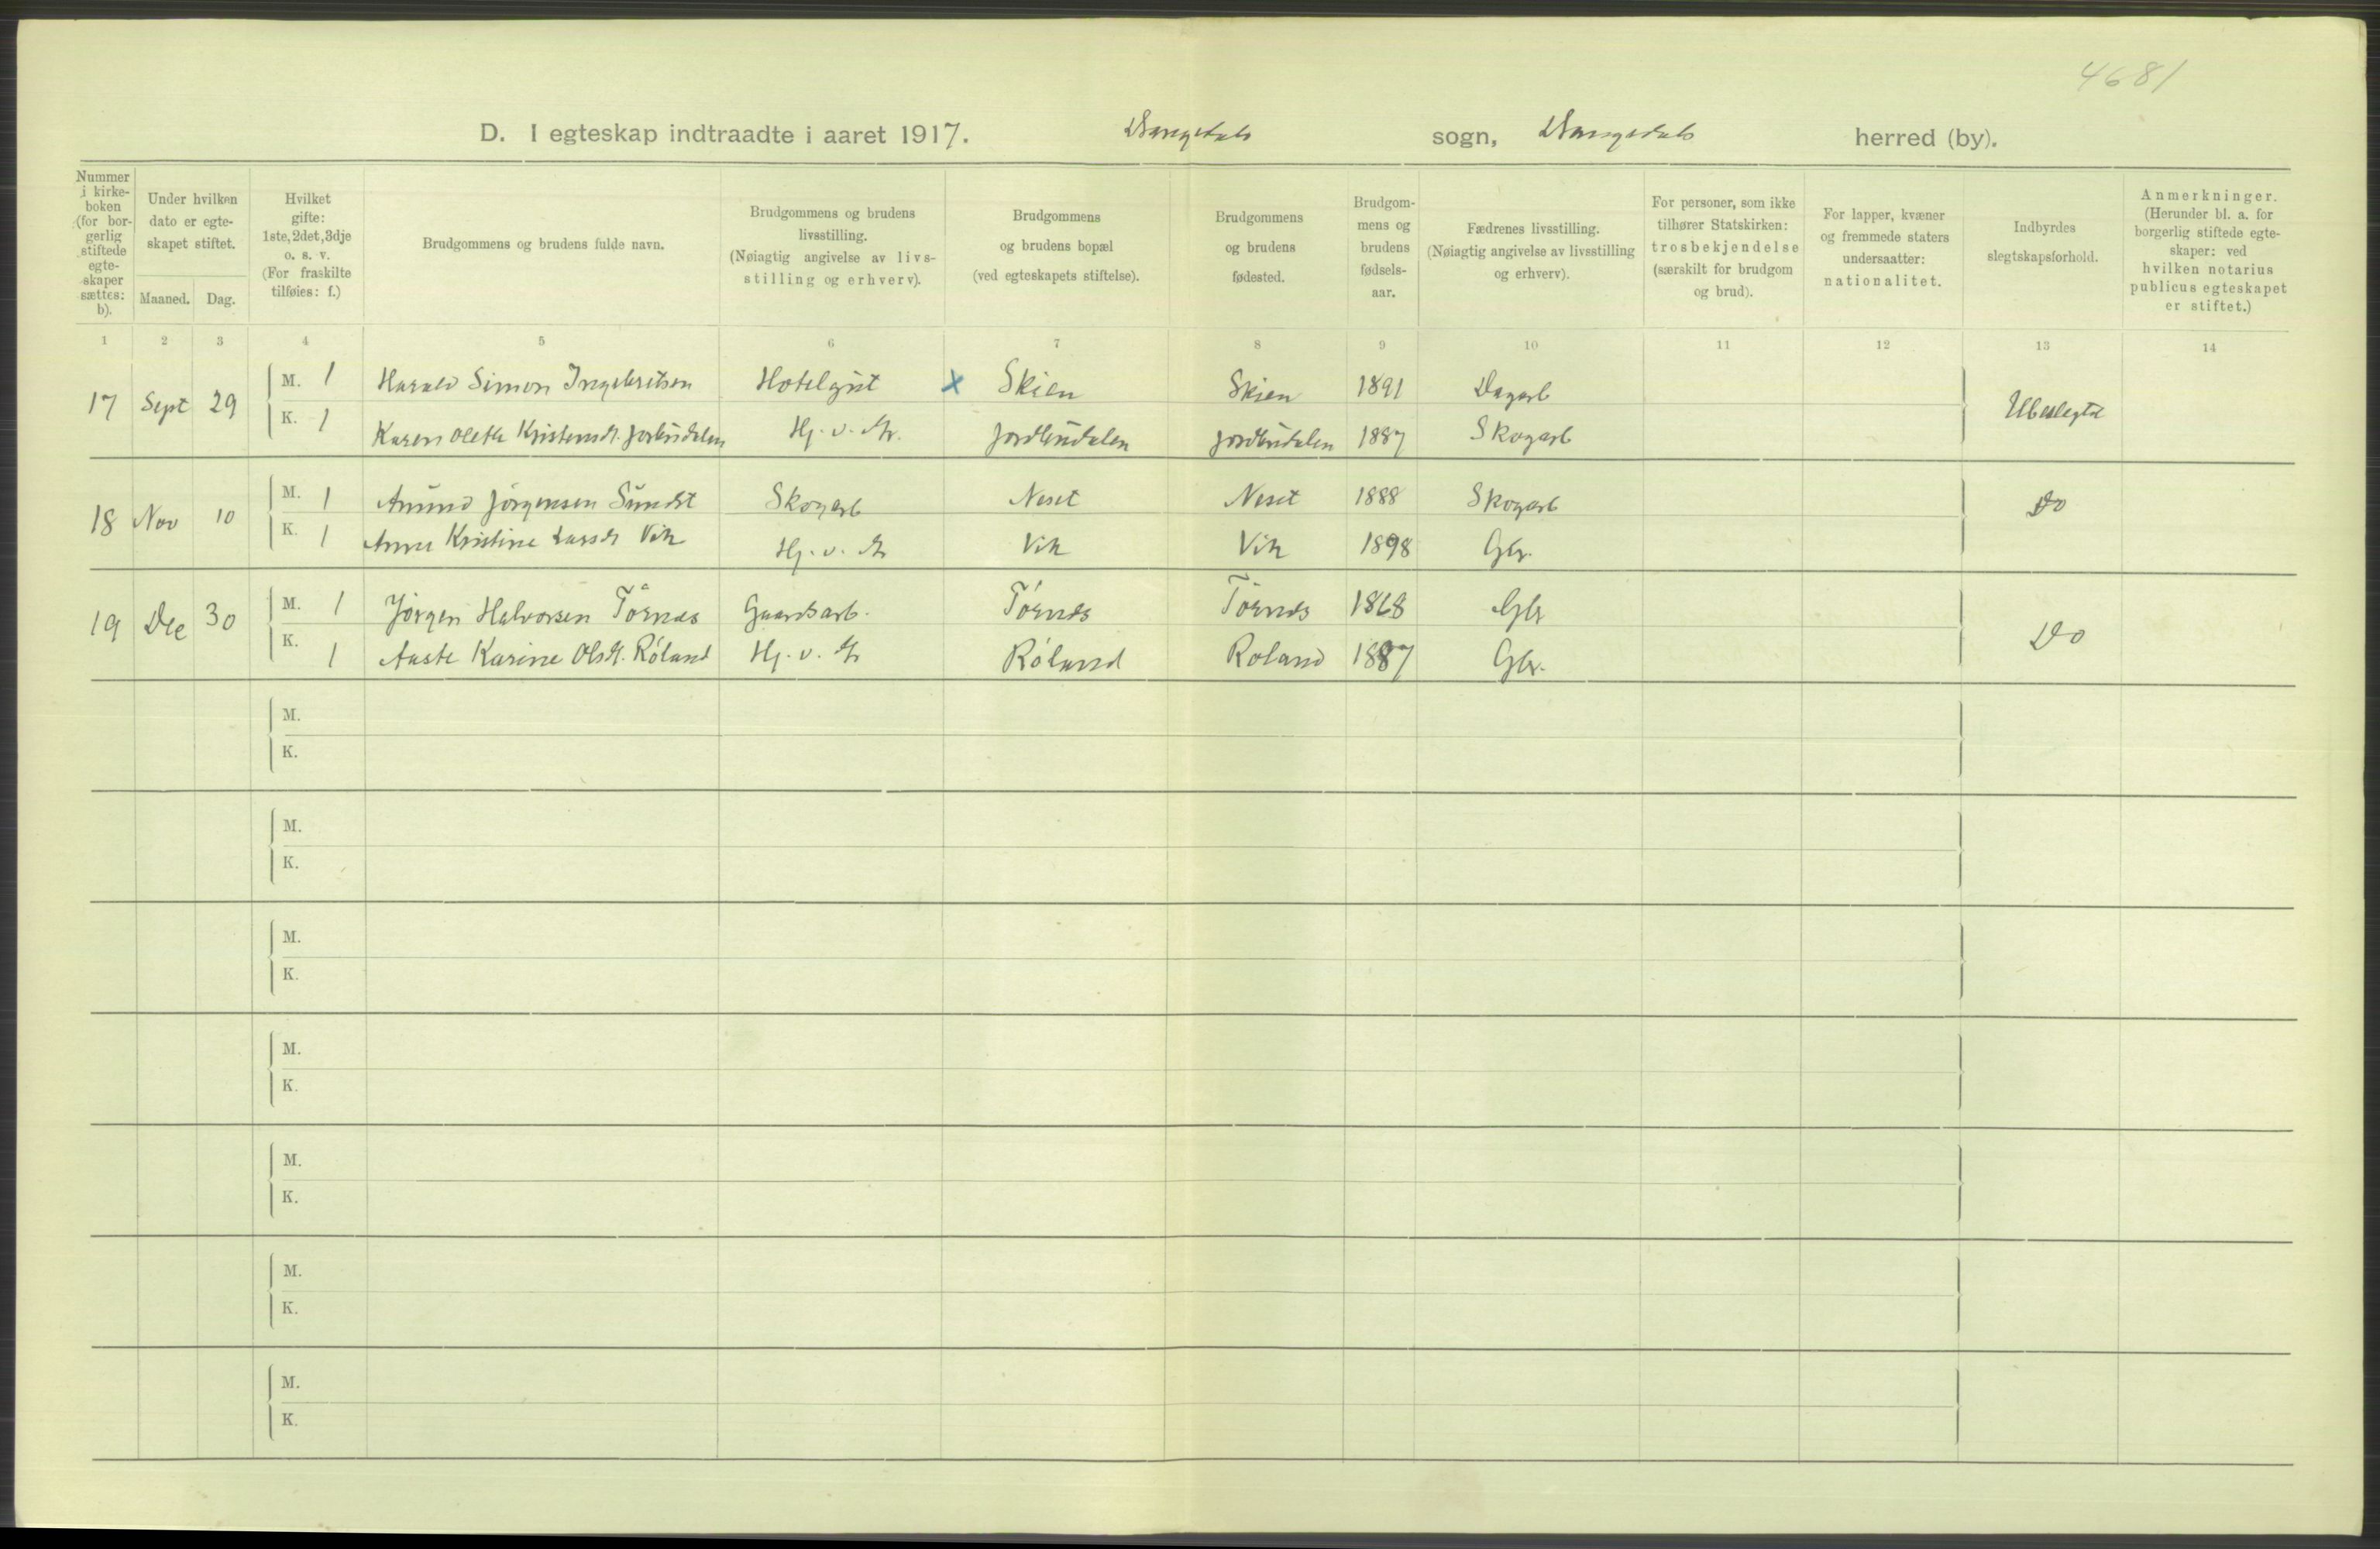 4681
D. I egteskap indtraadte i aaret 1917. Drangedals sogn, Drangedals herred (by).
Nummer i kirke-boken (for bor-gerlig stiftede egte-skaper sættes: b).
Under hvilken dato er egte-skapet stiftet.
Maaned. Dag.
Hvilket gifte: 1ste, 2det, 3dje o. s. v. (For fraskilte tilføies: f.)
Brudgommens og brudens fulde navn.
Brudgommens og brudens livsstilling. (Nøiagtig angivelse av livs-stilling og erhverv).
Brudgommens og brudens bopæl (ved egteskapets stiftelse).
Brudgommens og brudens fødested.
Brudgom-mens og brudens fødsels-aar.
Fædrenes livsstilling. (Nøiagtig angivelse av livsstilling og erhverv).
For personer, som ikke tilhører Statskirken: trosbekjendelse (særskilt for brudgom og brud).
For lapper, kvæner og fremmede staters undersaatter: nationalitet.
Indbyrdes slegtskapsforhold.
Anmerkninger. (Herunder bl. a. for borgerlig stiftede egte-skaper: ved hvilken notarius publicus egteskapet er stiftet.)
1 2 3 4 5 6 7 8 9 10 11 12 13 14
17 Sept 29 M. 1 Harald Simon Ingebretsen X Skien Skien 1891 Dagarb Ubeslegtd
K. 1 Karen Olette Kristensdt. Jordbudalen Hj. v. Mr. Jordbudalen Jordbudalen 1887 Skogarb
18 Nov 10 M. 1 Amund Jörgensen Sundst Skogarb Neset Neset 1888 Skogarb Do
K. 1 Anna Kristine Larsdt Vik Hj. v. Mr Vik Vik 1898 Gbr.
19 Dec 30 M. 1 Jörgen Halvorsen Törnes Gaardsarb. Törnes Törnes 1868 Gbr Do
K. 1 Aaste Karine Olsdt. Röland Hj. v. Mr Röland Roland 1887 Gbr.
M.
K.
M.
K.
M.
K.
M.
K.
M.
K.
M.
K.
M.
K.